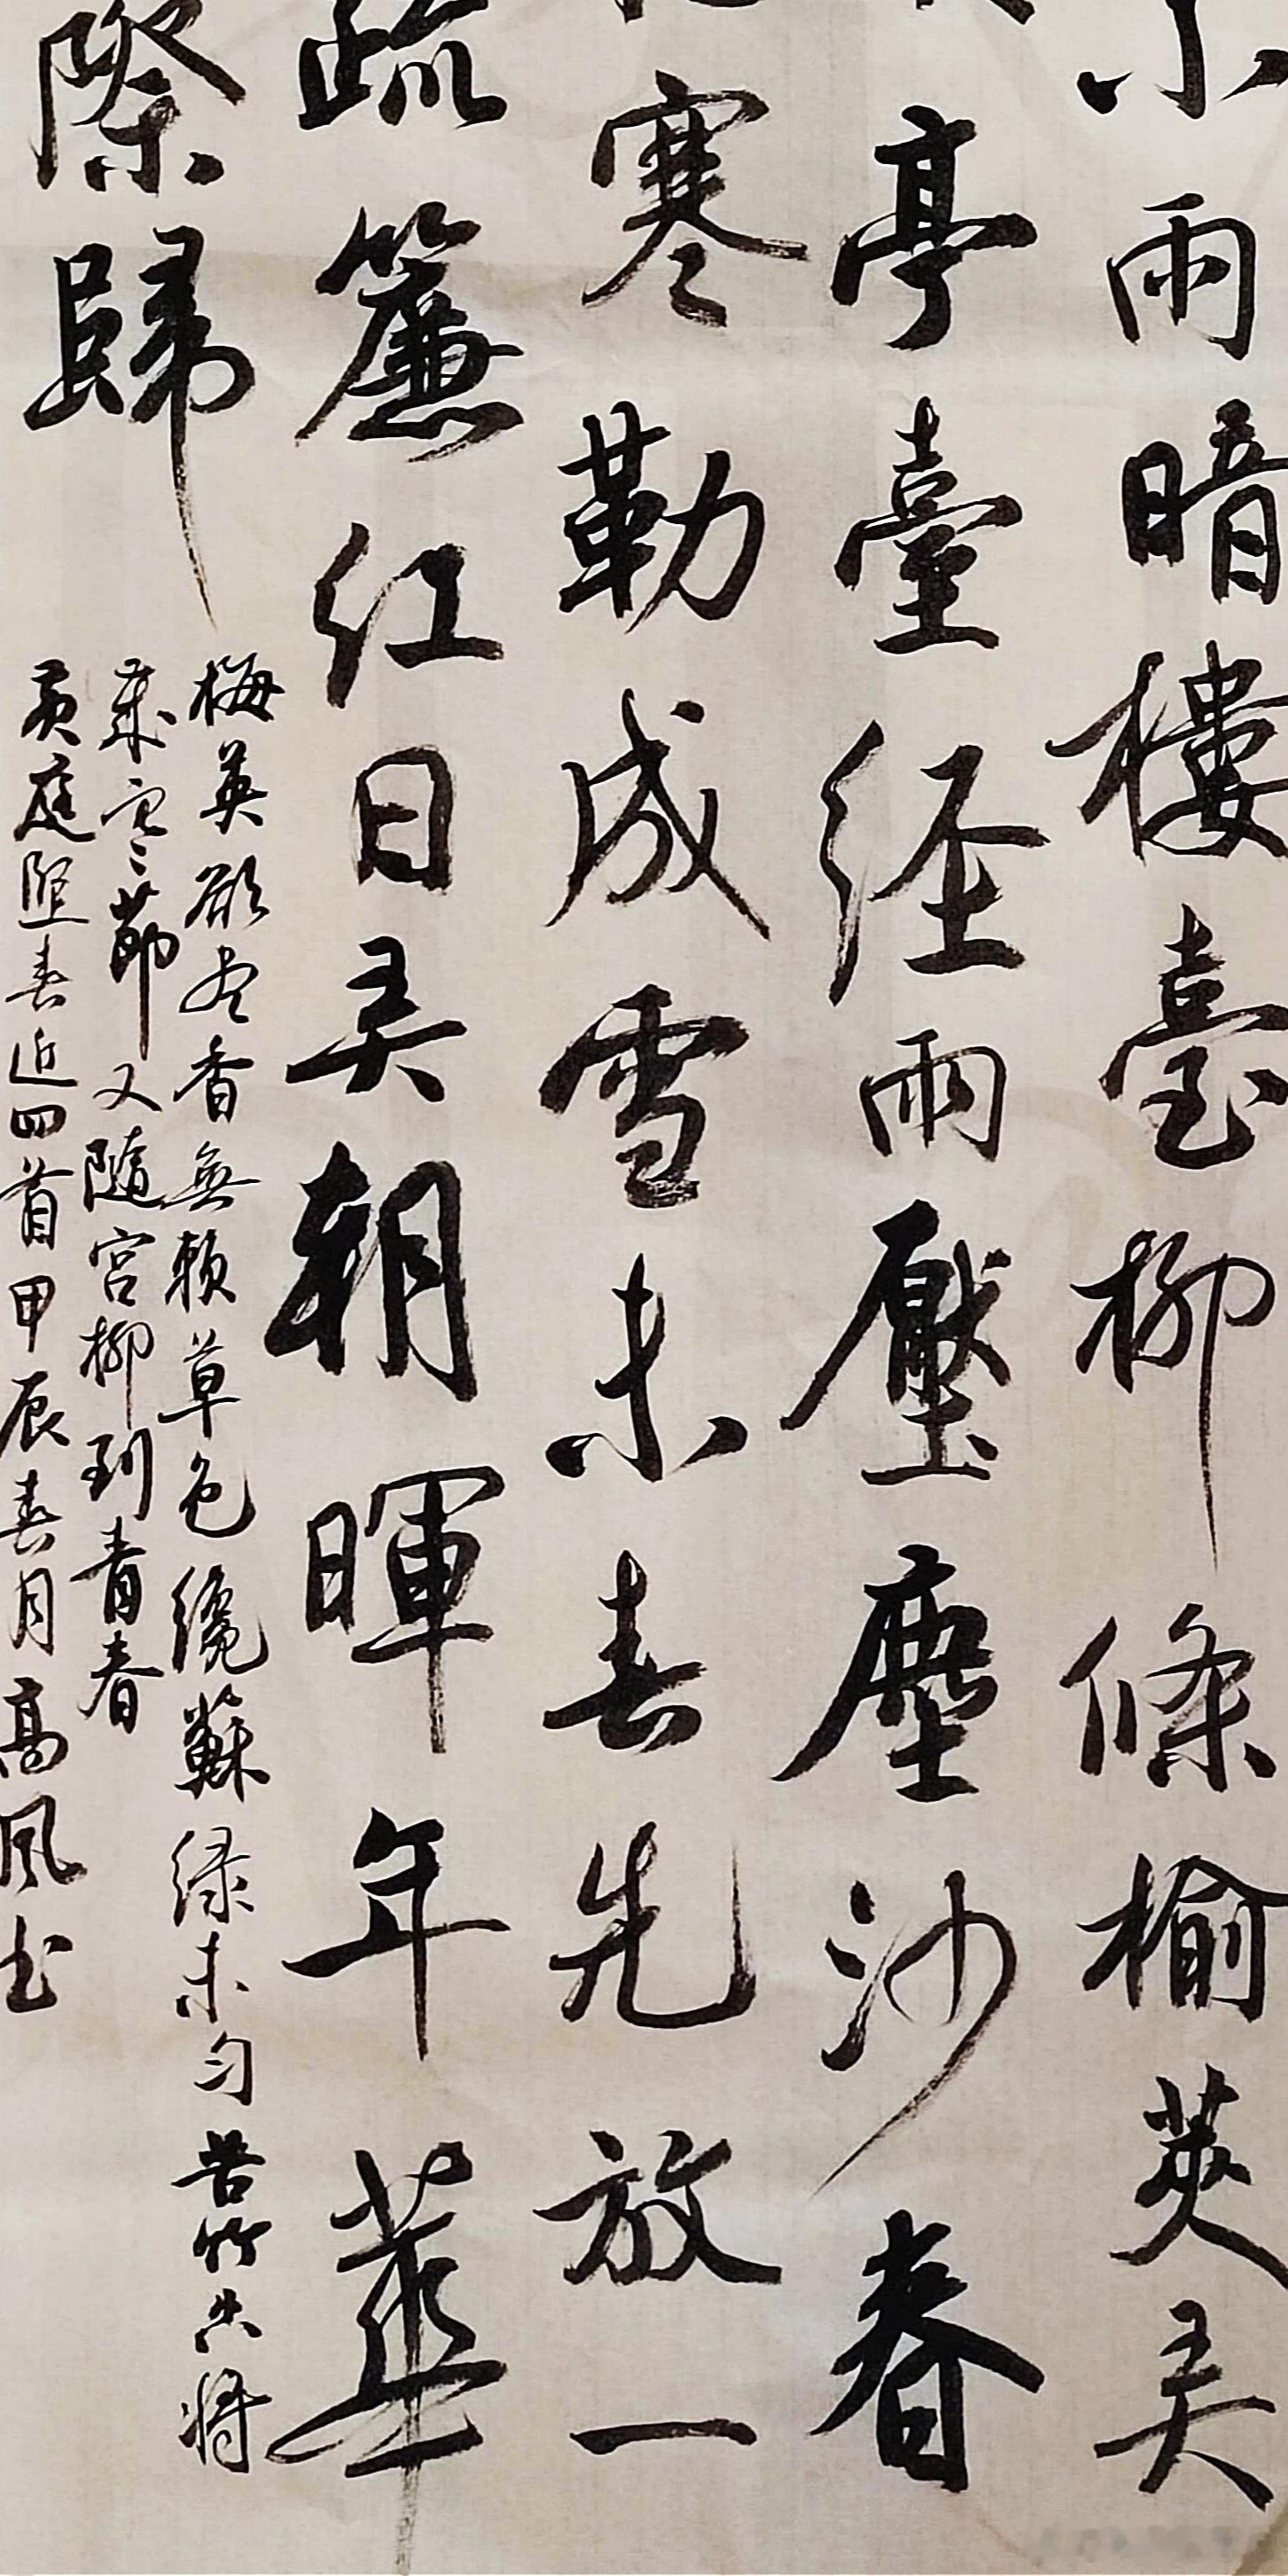 小雨暗樓臺柳條榆莢弄
亭臺經雨壓塵沙春
寒勒成雪未春先放一
疏簾紅日弄朝暉年華
際歸
梅英欲盡香無賴草色纔蘇綠未勻苦竹空將
歲寒節又隨宮柳到青春
黃庭堅春近四首甲辰春月高風書